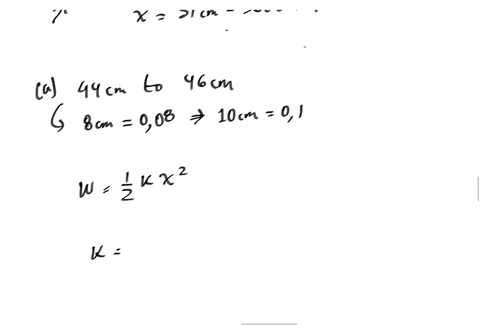 x = 51cm -
(a) 44cm to 46cm
↳ 8cm = 0,08 ⇒ 10cm = 0,1
W = 1/2 K x²
K =